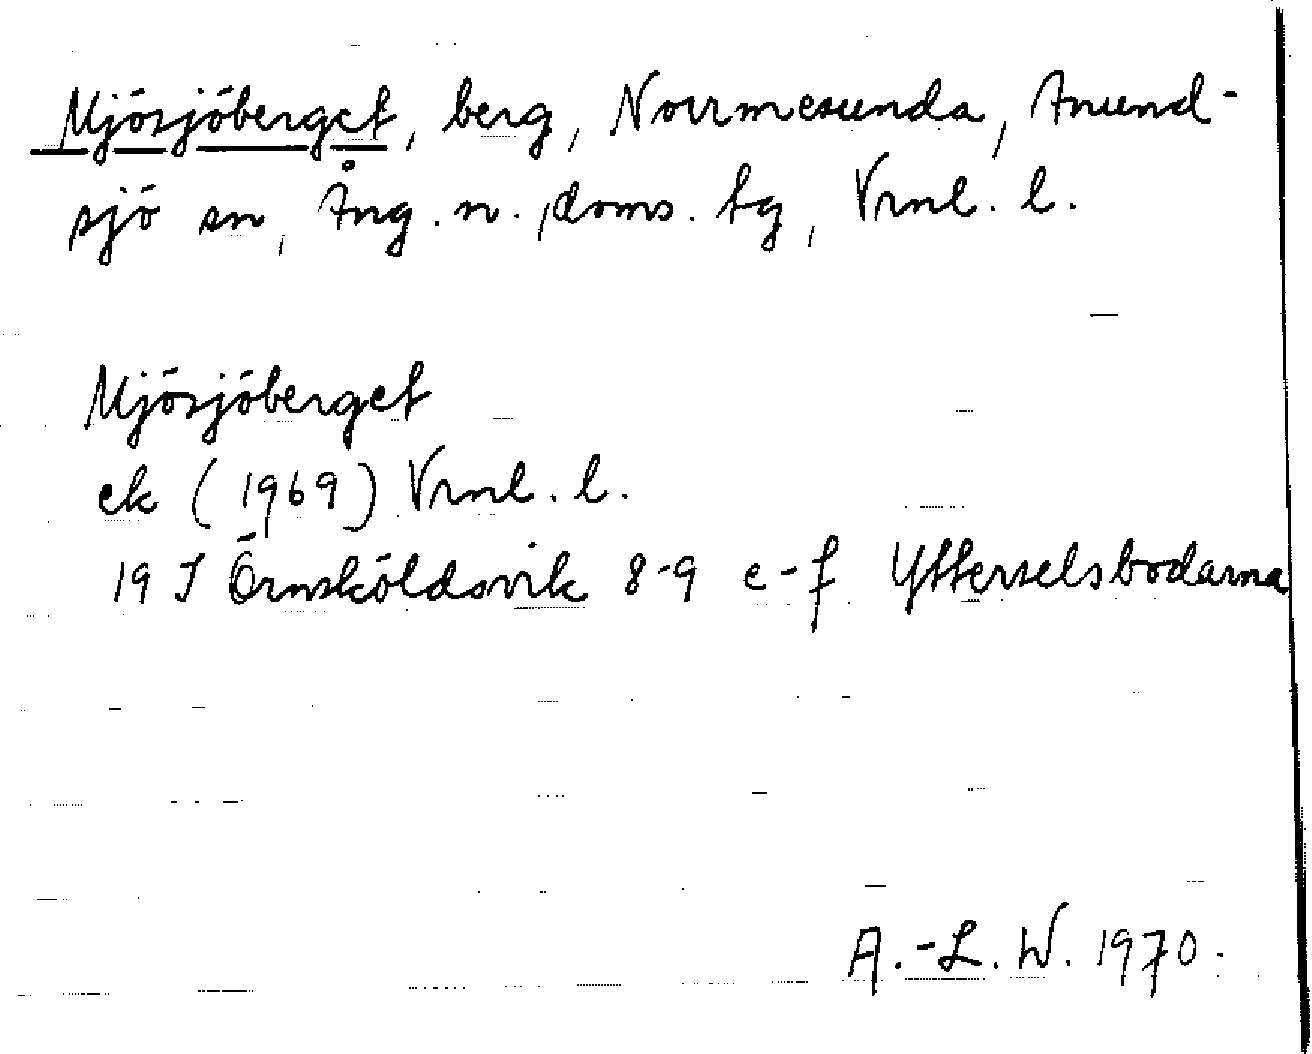 Mjösjöberget, berg, Norrmesunda, Anund-
sjö sn, Ång. n. doms. tg, Vrnl. l.
Mjösjöberget
ek (1969) Vrnl. l.
19 J Örnsköldsvik 8-9 e-f Ytterselsbodarna
A.-L. W. 1970.